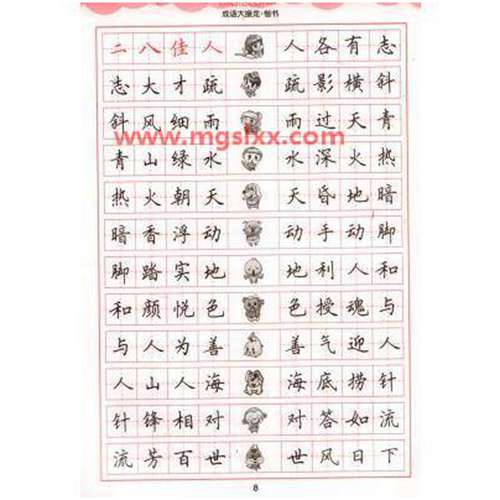 成语大接龙·楷书
二八佳人 人各有志
志大才疏 疏影横斜
斜风细雨 雨过天青
www.mgslxx.com
青山绿水 水深火热
热火朝天 天昏地暗
暗香浮动 动手动脚
脚踏实地 地利人和
和颜悦色 色授魂与
与人为善 善气迎人
人山人海 海底捞针
针锋相对 对答如流
流芳百世 世风日下
8